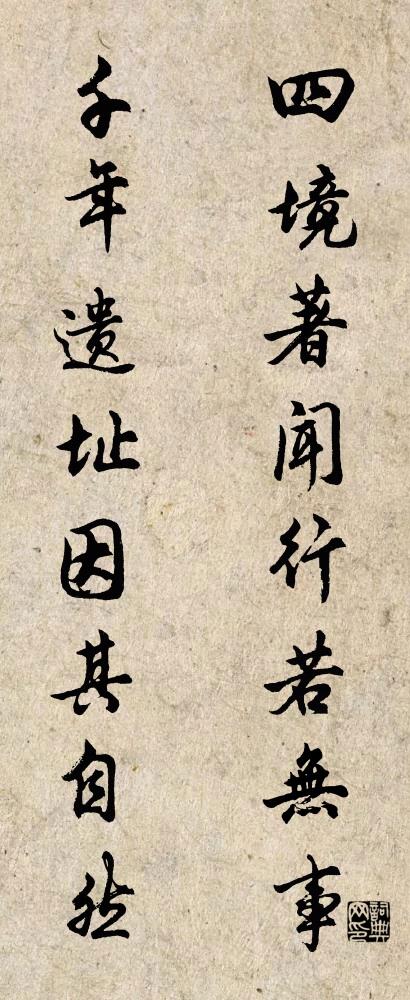 四境著闻行若無事
千年遗址因其自然
詞典网印